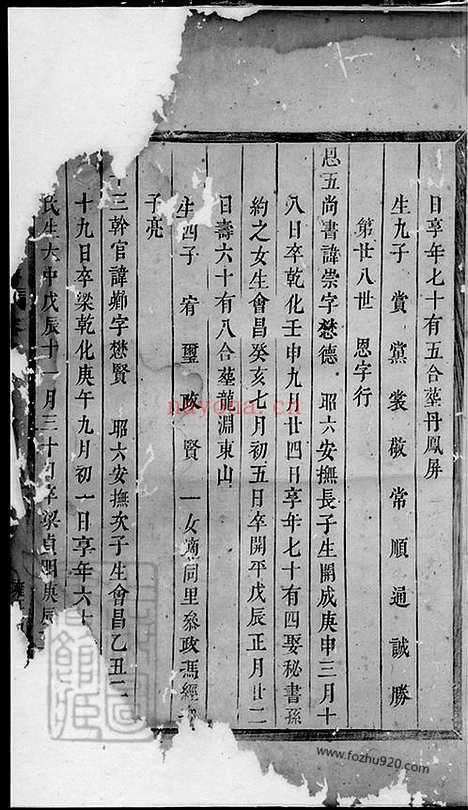 日享年七十有五合塟丹鳳屏
生九子 賞 黨 裳 敬 常 順 通 誠 勝
第廿八世 恩字行
恩五尚書諱崇字懋德 昭六安撫長子生開成庚申三月十
八日卒乾化壬申九 廿四日享年七十有四娶秘書孫
約之女生會昌癸亥七月初五日卒開平戊辰正月廿二
日壽六十有八合塟龍淵東山
生四子 宥 璽 政 賢 一女適同里叅政馮經
子亮
三幹官諱 字懋賢 昭六安撫次子生會昌乙丑二
十九日卒梁乾化庚午九月初一日享年六十
氏生大中戊辰十一月三十日卒梁貞明庚辰
nayona.cn
www.fozhu920.com